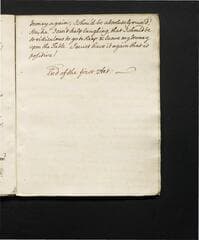 money again, I should be absolutely ruin'd!
Ha, ha! I can't help laughing, that I should be
so ridiculous as to go to sleep & leave my money
upon the Table. I must have it again that is
positive!
End of the first Act.